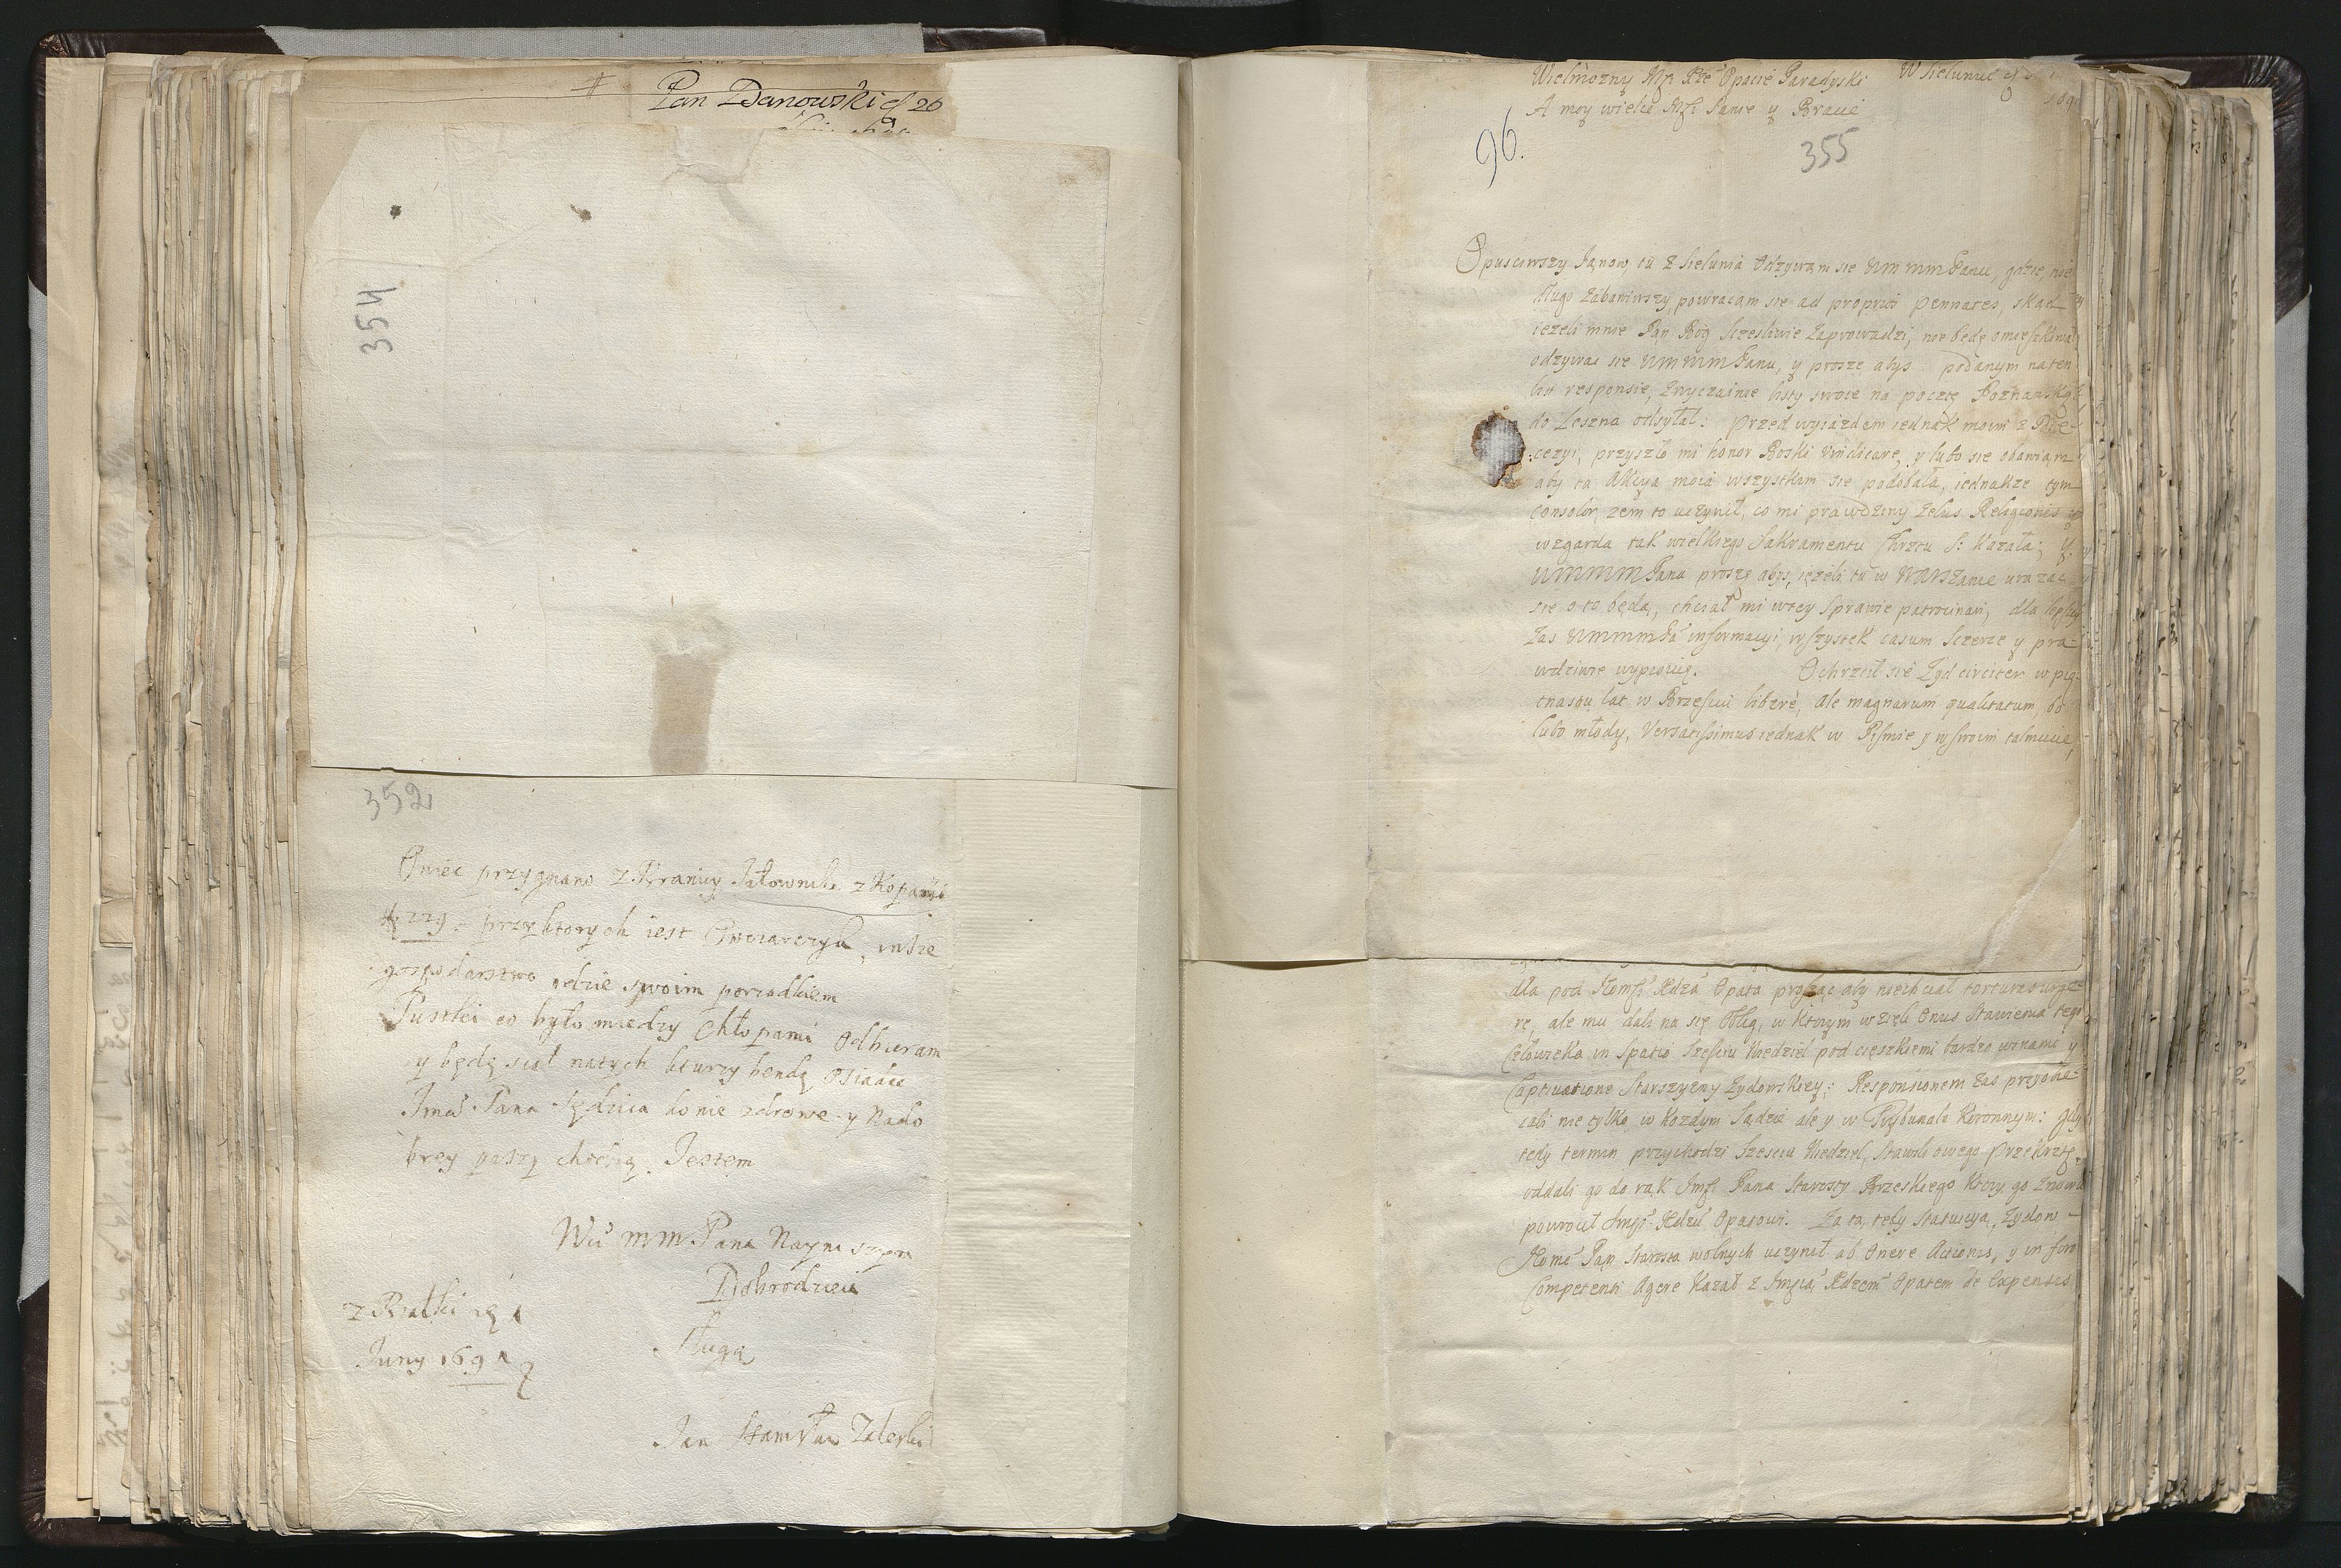 Pan Danowski 26
354
352
Owiec przygnano z Branicy Jałownika z
229 przyktorych iest Owczarczyk, insze
gospodarstwo idzie swoim porzadkiem
Pustki co było miedzy chłopami Odbieram
y będę siał natych kturzy bendą
Pana Sędzica konie zdrowe y Nado
brey paszy chodzą. Jestem
Wu mm Pana
Dobrodzieia
Sługa
z Białki
Juny 1691
Jan Stanisław Zaleski
Wielmozny Mſi Xże Opacie Paradyski W Sielunui
A moy wielce Mſi Panie y Bracie
96.
355
Opusciwszy Janow, tu z Sielunia Odzywam sie Um mm Panu, gdzie nie
długo zabawiwszy, powracam sie ad proprios Pennates, skad
iezeli mnie Pan Bog sczesliwie zaprowadzi, nie będę omieszkiwał
odzywac sie Um mm Panu, y prosze abys podanym na ten
list responsie, zwyczainie listy swoie na pocztę Poznanską
do Leszna odsyłał: Przed wyiazdem iednak moim z Die
cezyi, przyszło mi honor Boski vindicare, y lubo sie obawiam
aby ta Akcya moia wszystkim sie podobała, iednakze tym
consolor, zem to uczynił, co mi prawdziwy zelus Religionis
wzgarda tak wielkiego Sakramentu Chrztu S: kazała; y
UMMMM Pana proszę abys, iezeli tu w Warszawie urazac
sie o to będą, chciał mi wtey sprawie patrocinari, dla
zas Ummm Pa informacyi, wszystek casum sczerze y pra
wdziwie wypiszę. Ochrzcił się Zyd circiter w pię
tnastu lat w Brzesciu liberè, ale magnarum qualitatum, bo
lubo młody, Versatissimus iednak w Piśmie y wswoim talmucie,
dla pod Opata prosząc aby niechciał
re, ale mu dali na się Oblig, w ktorym wzieli Onus Stawienia tego
Człowieka in Spatio Szesciu Niedziel pod cięszkiemi bardzo winami y
Captivatione Starszyzny Zydowskiey: Responsionem zas przyobie
cali nie tylko w Kozdym Sądzie ale y w Trybunale Koronnym: gdy
tedy termin przychodzi Szesciu Niedziel, stawili owego Przekrztę,
oddali go do rąk Pana Starosty Brzeskiego ktory go znowu
powrocił Opatowi. Za tą tedy Statucyą, Zydow
Pan Starosta wolnych uczynił ab Onere Actionis, y in foro
Competenti Agere Kazał z Opatem de Expensis